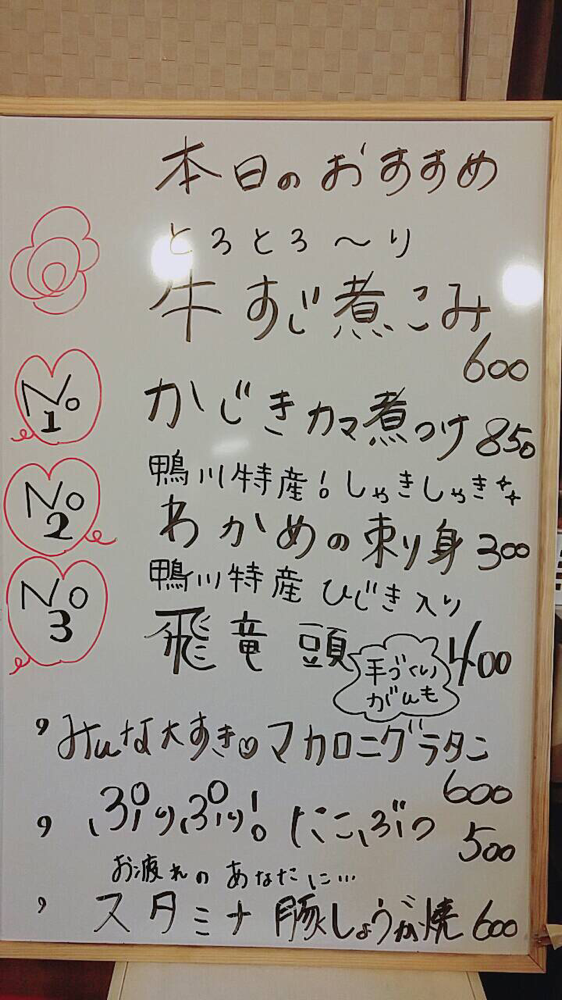 本日のおすすめ
とろとろ〜り
牛すじ煮こみ
600
No 1
かじきカマ煮つけ 850
鴨川特産!しゃきしゃき
No 2
わかめの刺り身 300
鴨川特産 ひじき入り
No 3
飛竜頭 400
手づくり
がんも
みんな大すき マカロニグラタン
600
ぷりぷり! たこぶつ
500
お疲れのあなたに…
スタミナ豚しょうが焼 600